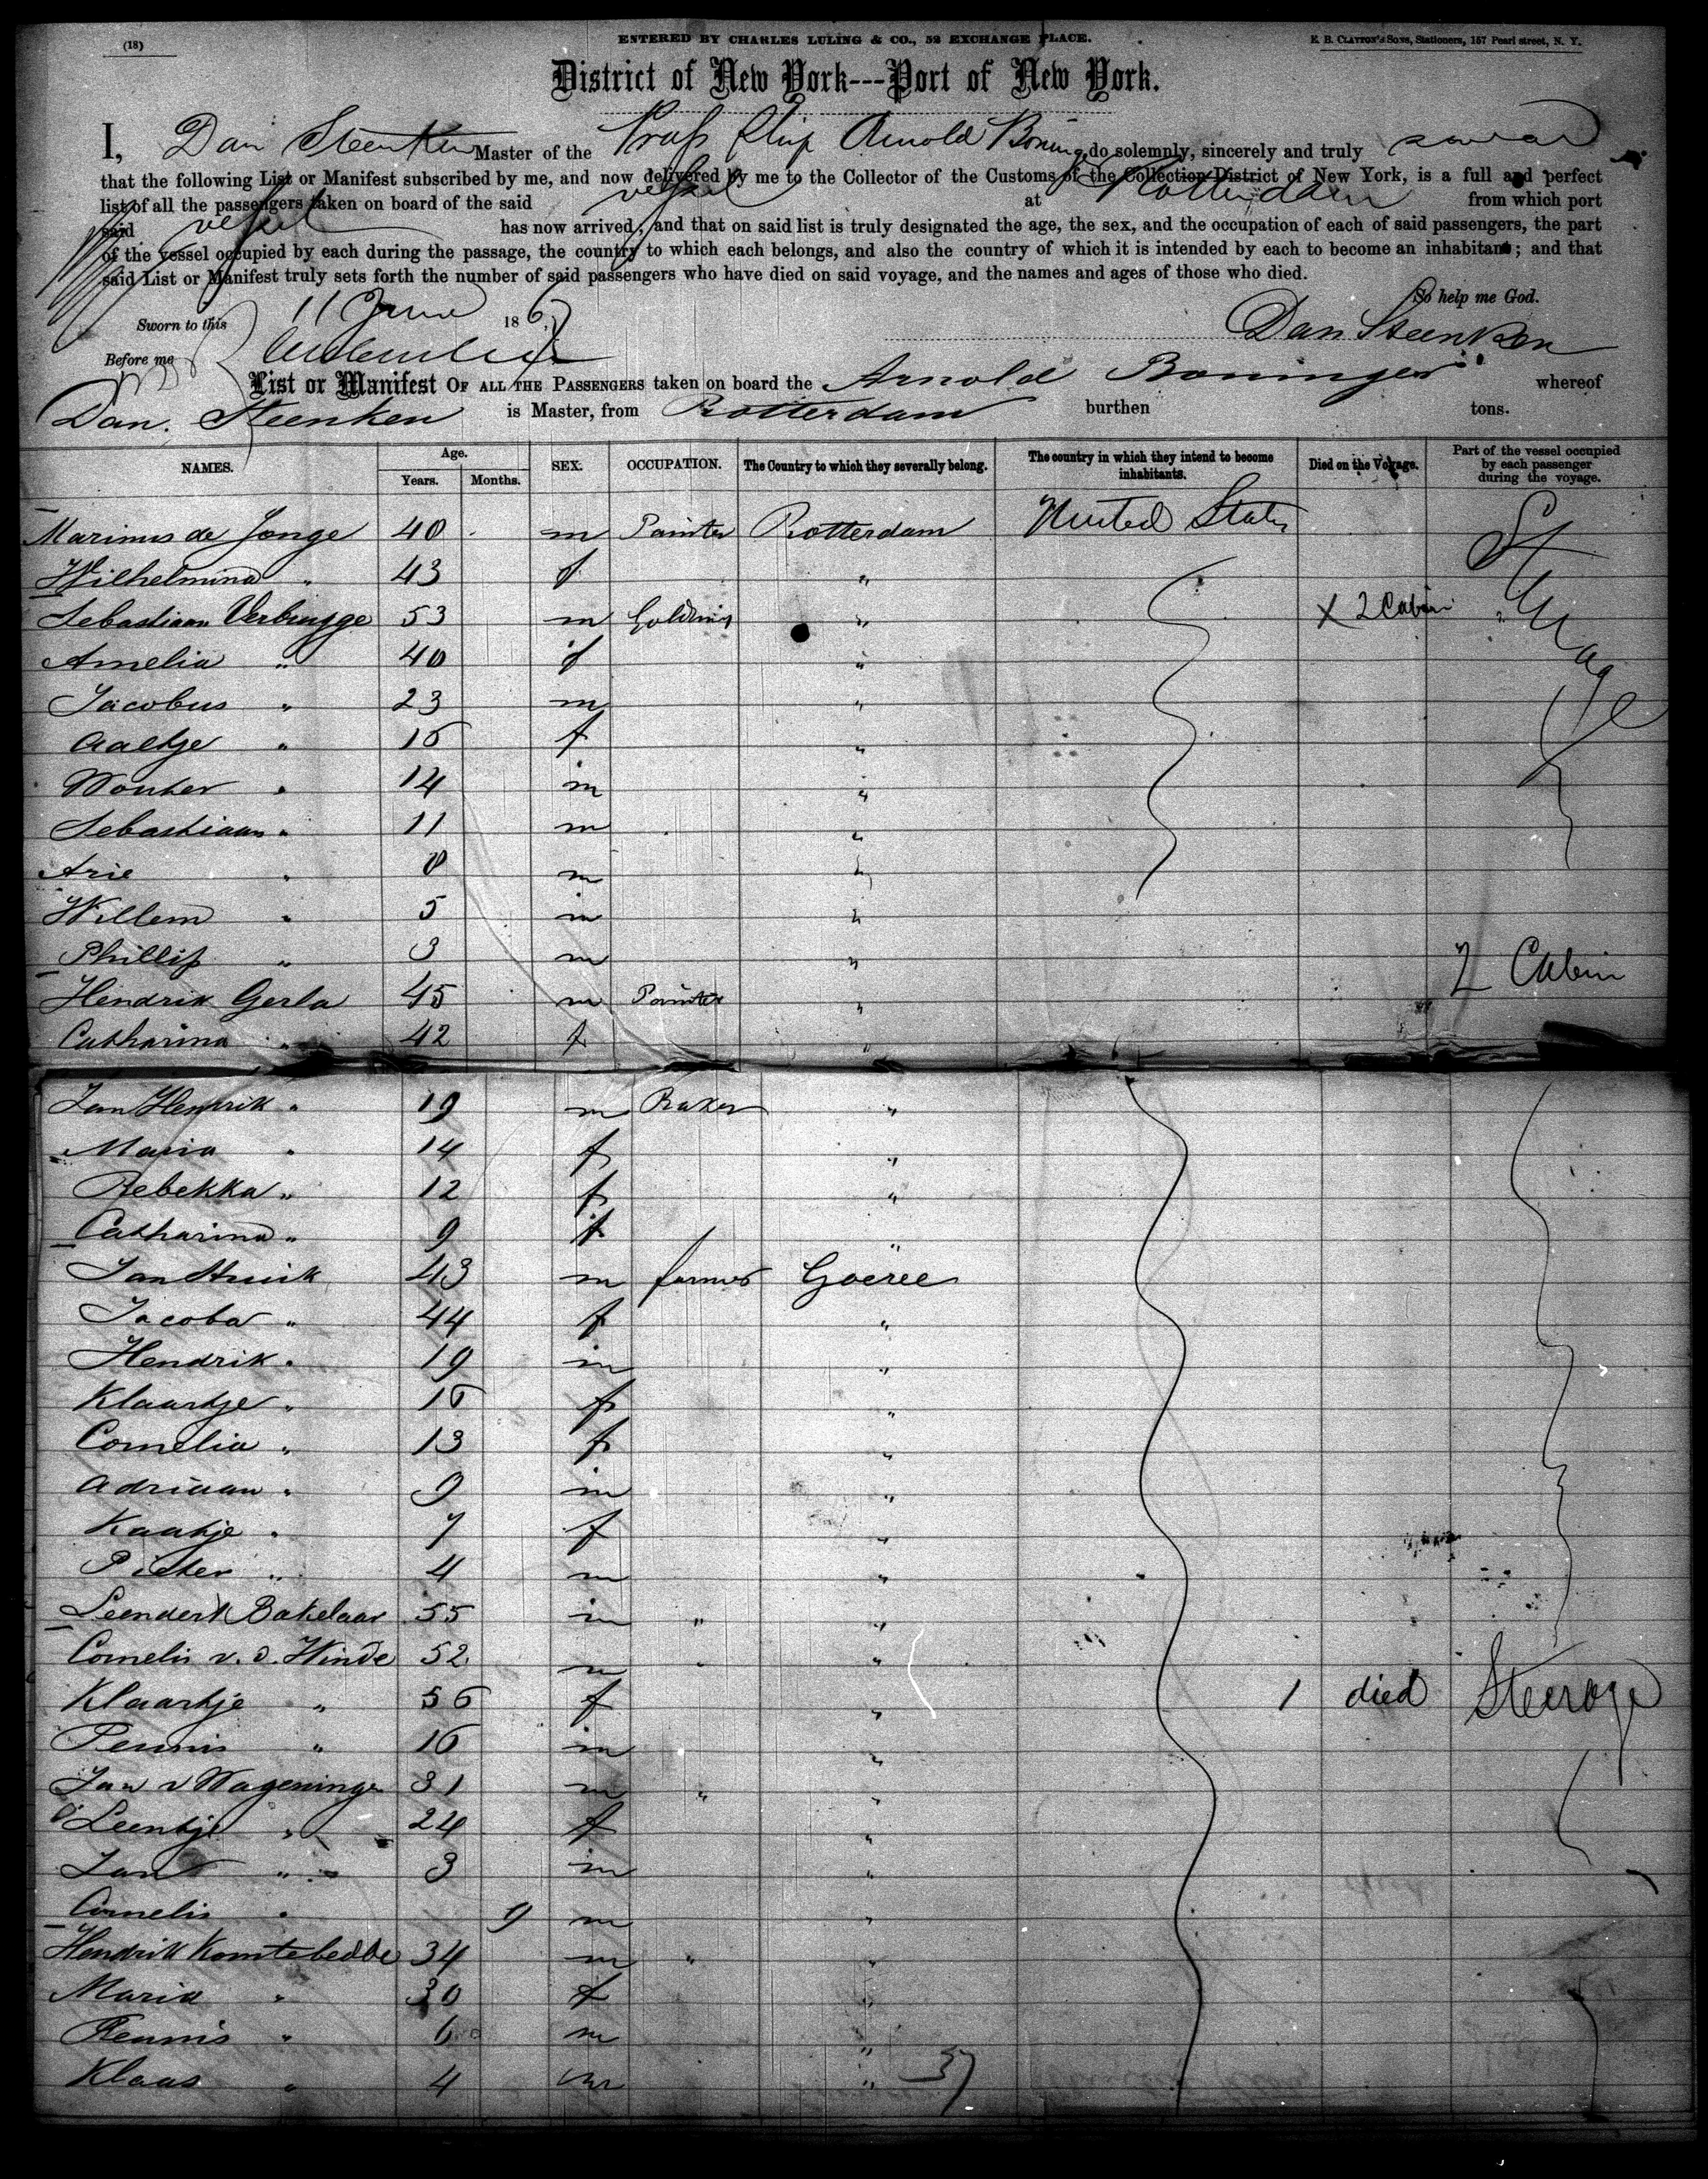 (18)
ENTERED BY CHARLES LULING & CO., 52 EXCHANGE PLACE.
E. B. CLAYTON'S SONS, Stationers, 157 Pearl street, N. Y.
District of New York---Port of New York.
I, Dan Steenken Master of the Pruss Ship Arnold Boninger do solemnly, sincerely and truly swear
that the following List or Manifest subscribed by me, and now delivered by me to the Collector of the Customs of the Collection District of New York, is a full and perfect
list of all the passengers taken on board of the said vessel at Rotterdam from which port
said vessel has now arrived; and that on said list is truly designated the age, the sex, and the occupation of each of said passengers, the part
of the vessel occupied by each during the passage, the country to which each belongs, and also the country of which it is intended by each to become an inhabitant; and that
said List or Manifest truly sets forth the number of said passengers who have died on said voyage, and the names and ages of those who died.
So help me God.
Sworn to this 11 June 186
Dan Steenken
Before me
List or Manifest OF ALL THE PASSENGERS taken on board the Arnold Boninger whereof
Dan. Steenken is Master, from Rotterdam burthen tons.
NAMES. Age. Years. Months. SEX. OCCUPATION. The Country to which they severally belong. The country in which they intend to become inhabitants. Died on the Voyage. Part of the vessel occupied by each passenger during the voyage.
Marinus de Jonge 40 m Painter Rotterdam United States Steerage
Wilhelmina " 43 f "
Sebastiaan Verbrugge 53 m " X 2 Cabin "
Amelia " 40 f "
Jacobus " 23 m "
Aaltje " 16 f "
Wouter " 14 m "
Sebastiaan " 11 m "
Arie " 8 m "
Willem " 5 m "
Phillip " 3 m " 2 Cabin
Hendrik Gerla 45 m Painter "
Catharina " 42 f "
Jan Hendrik " 19 m Baker "
Maria " 14 f "
Rebekka " 12 f "
Catharina " 9 f "
Jan 43 m farmer Goeree
Jacoba " 44 f "
Hendrik " 19 m "
Klaartje " 16 f "
Cornelia " 13 f "
Adriaan " 9 m "
Kaatje " 7 f "
Pieter " 4 m "
Leendert Bakelaar 55 m " "
Cornelis v. d. Winde 52 m " "
Klaartje " 56 f " 1 died Steerage
Teunis " 16 m "
Jan v Wageninge 31 m " "
Leentje " 24 f "
Jan " 3 m "
Cornelis " 9 m "
Hendrik Komtebedde 34 m " "
Maria " 30 f "
Teunis " 6 m "
Klaas " 4 m " 37